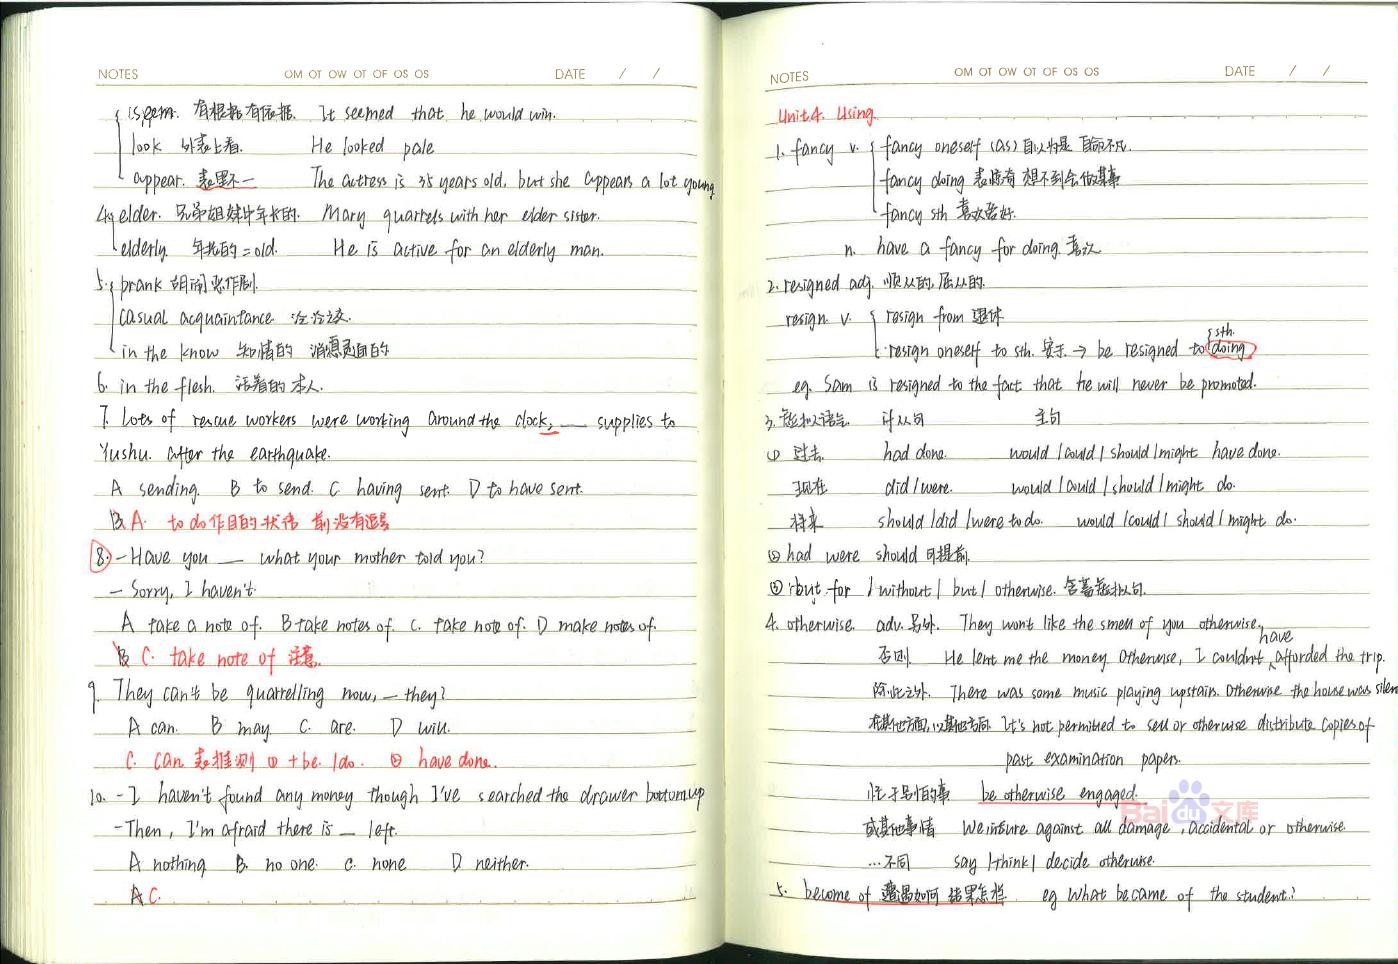 NOTES OM OT OW OT OF OS OS DATE / /
seem. 有根据有依据. It seemed that he would win.
look 外表上看. He looked pale
appear. 表里不一 The actress is 35 years old, but she appears a lot young
4. elder. 兄弟姐妹中年长的. Mary quarrels with her elder sister.
elderly 年老的 = old. He is active for an elderly man.
5. prank 胡闹恶作剧.
casual acquaintance 泛泛之交.
in the know 知情的 消息灵通的
6. in the flesh. 活着的 本人.
7. Lots of rescue workers were working around the clock, __ supplies to
Yushu. after the earthquake.
A sending. B to send. C having sent. D to have sent.
B A. to do 作目的状语 前没有逗号
8. - Have you __ what your mother told you?
- Sorry, I haven't.
A take a note of. B take notes of. C. take note of. D make notes of.
B C. take note of 注意.
9. They can't be quarrelling now, __ they?
A can. B may C. are. D will.
C. can 表推测 ① + be /do. ② have done.
10. - I haven't found any money though I've searched the drawer bottom up
- Then, I'm afraid there is __ left.
A nothing B. no one. C. none D neither.
A C.
NOTES OM OT OW OT OF OS OS DATE / /
Unit4. Using
1. fancy v. fancy oneself (as) 自以为是 自命不凡.
fancy doing 表惊奇 想不到会做某事
fancy sth 喜欢爱好.
n. have a fancy for doing. 喜欢
2. resigned adj. 顺从的, 屈从的.
resign. v. resign from 退休
sth.
resign oneself to sth. 安于 → be resigned to doing
eg. Sam is resigned to the fact that he will never be promoted.
3. 虚拟语气 从句 主句
① 过去. had done. would / could / should / might have done.
现在 did / were. would / could / should / might do.
将来 should / did / were to do. would / could / should / might do.
② had were should 可提前.
③ but for / without / but / otherwise. 含蓄虚拟句.
4. otherwise. adv. 另外. They won't like the smell of you otherwise,
have
否则. He lent me the money. Otherwise, I couldn't afforded the trip.
除此之外. There was some music playing upstairs. Otherwise the house was silen
在其他方面, 以其他方面. It's not permitted to sell or otherwise distribute copies of
past examination papers.
忙于别的事 be otherwise engaged.
或其他事情 We insure against all damage, accidental or otherwise.
... 不同 say / think / decide otherwise.
5. become of 遭遇如何 结果怎样. eg What became of the student?
Baidu文库